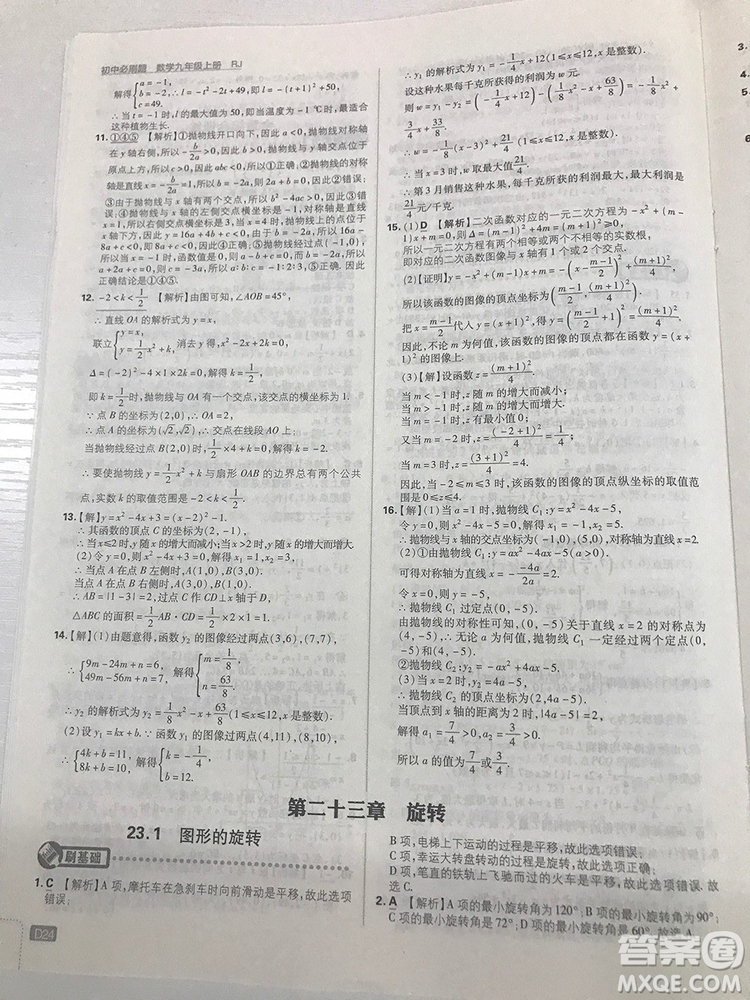 初中必刷题 数学九年级上册 RJ
解得{a=-1, b=-2, c=49. ∴l与t之间的函数关系式为l=-t²-2t+49,即l=-(t+1)²+50,
∴当t=-1时,l的最大值为50,即当温度为-1℃时,最适合
这种植物生长.
11.①④⑤ 【解析】抛物线开口向下,因此a<0,抛物线对称轴
在y轴右侧,所以-b/2a>0,因此b>0,抛物线与y轴的交点在
原点上方,所以c>0,因此abc<0,所以①正确;②抛物线的对称
轴是直线x=-b/2a
与x轴的左侧交点横坐标是-1,对称轴是直线
12.-2<k<1/2 【解析】由图可知,∠AOB=45°,
∴直线OA的解析式为y=x,
联立{y=x, y=1/2x²+k, 消去y得,x²-2x+2k=0,
Δ=(-2)²-4×1×2k=0,
即k=1/2时,抛物线与OA有一个交点,此交点的横坐标为1.
∵点B的坐标为(2,0),∴OA=2,
∴点A的坐标为(√2,√2),∴交点在线段AO上;
当抛物线经过点B(2,0)时,1/2×4+k=0,解得k=-2.
∴要使抛物线y=1/2x²+k与扇形OAB的边界总有两个公共
点,实数k的取值范围是-2<k<1/2.
13.【解】(1)y=x²-4x+3=(x-2)²-1,
∴其函数的顶点C的坐标为(2,-1),
∴当x≤2时,y随x的增大而减小;当x>2时,y随x的增大而增大.
(2)令y=0,则x²-4x+3=0,解得x₁=1,x₂=3,
∴当点A在点B左侧时,A(1,0),B(3,0);
当点A在点B右侧时,A(3,0),B(1,0).
∴AB=2.过点C作CD⊥x轴于D,
△ABC的面积=1/2AB·CD=1/2×2×1=1.
14.【解】(1)由题意得,函数y₂的图像经过两点(3,6),(7,7),
∴{9m-24+n=6, 49m-56+n=7, 解得{m=1/8, n=63/8.
∴y₂的解析式为y₂=1/8x²-x+63/8(1≤x≤12,x是整数).
(2)设y₁=kx+b.∵函数y₁的图像过两点(4,11),(8,10),
∴{4k+b=11, 8k+b=10, 解得{k=-1/4, b=12.
∴y₁的解析式为y₁=-1/4x+12(1≤x≤12,x是整数).
设这种水果每千克所获得的利润为w元.
则w=y₁-y₂=(-1/4x+12)-(1/8x²-x+63/8)=-1/8x²+
3/4x+33/8,
∴w=-1/8(x-3)²+21/4(1≤x≤12,x是整数),
∴当x=3时,w取最大值21/4,
∴第3月销售这种水果,每千克所获得的利润最大,最大利润是
21/4元/千克.
15.(1)D 【解析】二次函数对应的一元二次方程为-x²+(m-
1)x+m=0,则Δ=(m-1)²+4m=(m+1)²≥0,
所以一元二次方程有两个相等或两个不相等的实数根,
即对应的二次函数与x轴有1个或2个交点.
(2)【证明】y=-x²+(m-1)x+m=-(x-(m-1)/2)²+(m+1)²/4,
所以该函数的图像的顶点坐标为((m-1)/2,(m+1)²/4).
把x=(m-1)/2代入y=(x+1)²,得y=((m-1)/2+1)²=(m+1)²/4.
因此,不论m为何值,该函数的图像的顶点都在函数y=(x+1)²
的图像上.
(3)【解】设函数z=(m+1)²/4.
当m<-1时,z随m的增大而减小;
当m>-1时,z随m的增大而增大.
当m=-1时,z有最小值0;
又当m=-2时,z=(-2+1)²/4=1/4;
当m=3时,z=(3+1)²/4=4.
因此,当-2≤m≤3时,该函数的图像的顶点纵坐标的取值范
围是0≤z≤4.
16.【解】(1)当a=1时,抛物线C₁:y=x²-4x-5.
令y=0,则x²-4x-5=0,解得x₁=-1,x₂=5,
∴抛物线C₁与x轴的交点坐标为(-1,0),(5,0),对称轴为直线x=2.
(2)①由抛物线C₁:y=ax²-4ax-5,
可得对称轴为直线x=-(-4a)/2a=2.
令x=0,则y=-5.
∴抛物线C₁过定点(0,-5).
由抛物线的对称性可知,(0,-5)关于直线x=2的对称点为
(4,-5),∴无论a为何值,抛物线C₁一定经过两个定点(0,
-5),(4,-5).
②抛物线C₂的解析式为y=-ax²+4ax-5.
(3)∵抛物线C₂的顶点坐标为(2,4a-5),
顶点到x轴的距离为2,∴|4a-5|=2,
解得a₁=7/4>0,a₂=3/4>0,
所以a的值为7/4或3/4.
第二十三章 旋转
23.1 图形的旋转
刷基础
1.C 【解析】A项,摩托车在急刹车时向前滑动是平移,故此选项
错误;
B项,电梯上下运动的过程是平移,故此选项错误;
C项,幸运大转盘转动的过程是旋转,故此选项正确;
D项,笔直的铁轨上飞驰而过的火车是平移,故此选项错误.
故选C.
2.A 【解析】A项的最小旋转角为120°;B项的最小旋转角为90°;
C项的最小旋转角为72°;D项的最小旋转角是60°.故选A.
D24
答案圈
MXQE.COM